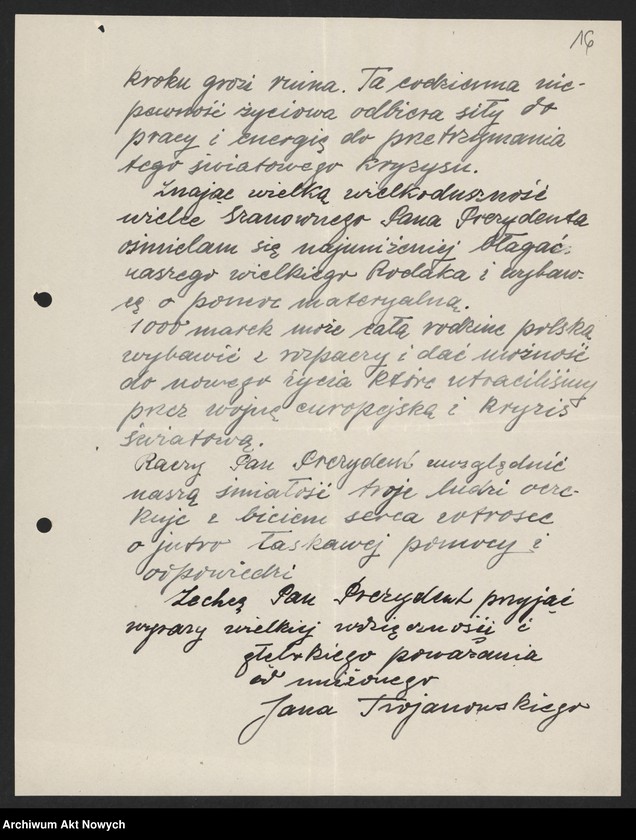 16
kroku grozi ruina. Ta codzienna nie-
pewność życiowa odbiera siły do
pracy i energię do przetrzymania
tego światowego kryzysu.
Znając wielką wielkoduszność
wielce Szanownego Pana Prezydenta
ośmielam się najuniżeniej błagać
naszego wielkiego Rodaka i wybaw-
cę o pomoc materyalną.
1000 marek może całą rodzinę polską
wybawić z rozpaczy i dać możność
do nowego życia które utraciliśmy
przez wojnę europejską i kryzis
światową.
Raczy Pan Prezydent uwzględnić
naszą śmiałość troje ludzi ocze-
kuje z biciem serca
o jutro łaskawej pomocy i
odpowiedzi
Zechcą Pan Prezydent przyjąć
wyrazy wielkiej wdzięczności i
głębokiego poważania
od uniżonego
Jana Trojanowskiego
Archiwum Akt Nowych